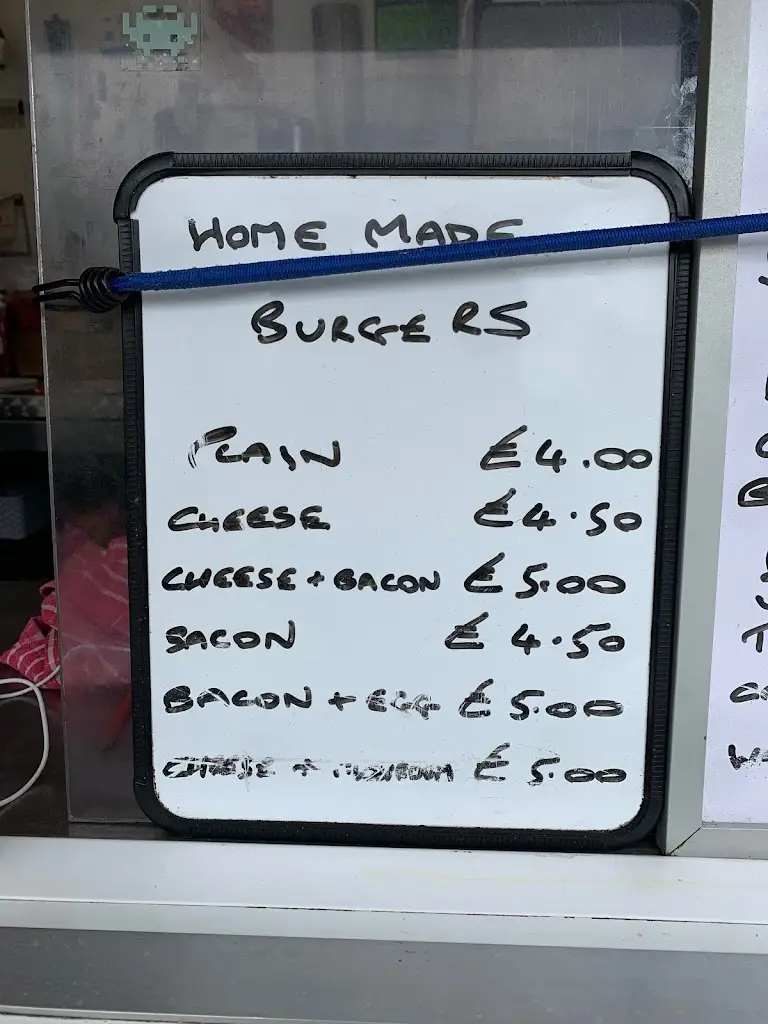 HOME MADE
BURGERS
PLAIN £4.00
CHEESE £4.50
CHEESE + BACON £5.00
BACON £4.50
BACON + EGG £5.00
CHEESE + MUSHROOM £5.00